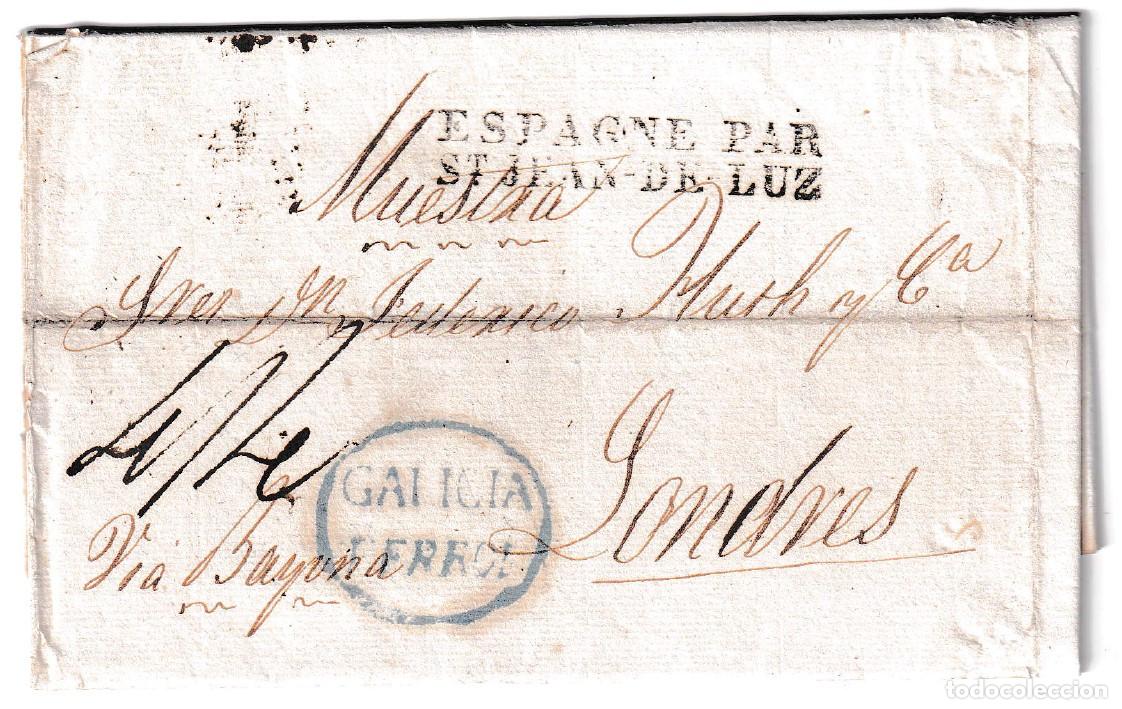 ESPAGNE PAR
ST JEAN-DE-LUZ
Muestra
Sres Dn Federico Huth y Ca
GALICIA
Londres
FERROL
Via Bayona
todocoleccion